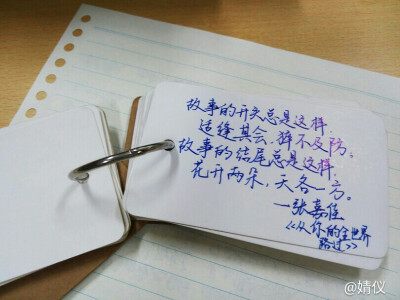 故事的开头总是这样,
适逢其会,猝不及防。
故事的结尾总是这样,
花开两朵,天各一方。
—张嘉佳
《从你的全世界
路过》
@婧仪